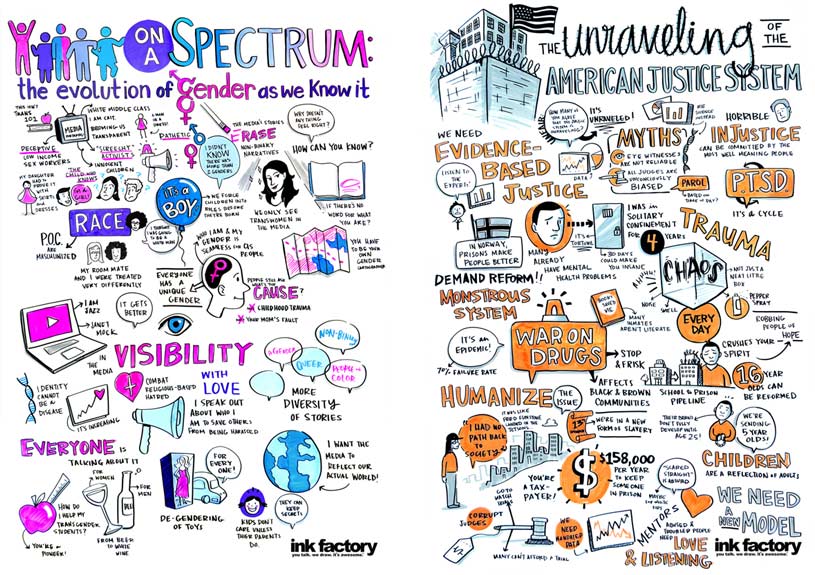 ON
A
SPECTRUM:
the evolution of Gender as we Know it
THIS ISN'T
TRANS
101
MEDIA
WHITE MIDDLE CLASS
I AM CAIT.
BRINGING US
TRANSPARENT
DECEPTIVE
LOW INCOME
SEX WORKERS
INNOCENT
CHILDREN
PATHETIC
I DIDN'T
KNOW
THERE WAS
MORE THAN
2 GENDERS
THE MEDIA'S STORIES
ERASE
NON-BINARY
NARRATIVES
WHY DOESN'T
ANYTHING
FEEL RIGHT?
HOW CAN YOU KNOW?
MY DAUGHTER
HAD TO
PROVE IT
WITH
SKIRTS
AND
DRESSES
THE CHILD WHO
KNOWS
I'M A
GIRL!
IT'S A
BOY
WE FORCE
CHILDREN INTO
ROLES BEFORE
THEY'RE BORN
WE ONLY SEE
TRANSWOMEN IN
THE MEDIA
IF THERE'S NO
WORD FOR WHAT
YOU ARE?
RACE
P.O.C.
ARE
MASCULINIZED
I THOUGHT
I WAS GOING
TO BE A
WHITE MAN
MY ROOM MATE
AND I WERE TREATED
VERY DIFFERENTLY
WHO I AM & MY
GENDER IS
SEAMLESS FOR CIS
PEOPLE
EVERYONE
HAS A
UNIQUE
GENDER
YOU HAVE
TO BE YOUR
OWN
GENDER
CARTOGRAPHER
PEOPLE STILL ASK
WHAT'S THE
CAUSE?
CHILDHOOD TRAUMA
YOUR MOM'S FAULT
I AM
JAZZ
JANET
MOCK
IN THE
MEDIA
IT GETS
BETTER
VISIBILITY
I DENTITY
CANNOT
BE A
DISEASE
IT'S INCREASING
COMBAT
RELIGIOUS-BASED
HATRED
WITH
LOVE
I SPEAK OUT
ABOUT WHO I
AM TO SAVE OTHERS
FROM BEING HARASSED
AGENDER
NON-BINARY
QUEER
PEOPLE OF
COLOR
MORE
DIVERSITY
OF STORIES
EVERYONE IS
TALKING ABOUT IT
HOW DO
I HELP MY
TRANSGENDER
STUDENTS?
YOU'RE A
PIONEER!
FOR A
WOMAN
FOR
MEN
FROM BEER TO
WHITE
WINE
FOR
EVERY
ONE!
DE-GENDERING
OF TOYS
KIDS DON'T
CARE UNLESS
THEIR PARENTS
DO.
THEY CAN
KEEP
SECRETS
I WANT THE
MEDIA TO
REFLECT OUR
ACTUAL WORLD!
ink factory
you talk. we draw. it's awesome.
THE unraveling OF THE
AMERICAN JUSTICE SYSTEM
WE NEED
EVIDENCE-
BASED
JUSTICE
LISTEN TO
THE
EXPERTS!
IT'S
UNRAVELED!
DATA?
MYTHS
EYE WITNESSES
ARE NOT RELIABLE
ALL JUDGES ARE
UNCONSCIOUSLY
BIASED
PAROL
BASED ON
TIME OF DAY?
USE
SCIENCE
INSTEAD
HORRIBLE
INJUSTICE
CAN BE COMMITTED BY THE
MOST WELL MEANING PEOPLE
P.T.S.D.
IT'S A CYCLE
IN NORWAY,
PRISONS MAKE
PEOPLE BETTER
MANY
ALREADY
HAVE MENTAL
HEALTH PROBLEMS
IT'S
TORTURE
30 DAYS
COULD MAKE
YOU INSANE
I WAS IN
SOLITARY
CONFINEMENT
FOR 4 YEARS
TRAUMA
CHAOS
NOT JUST A
NEAT LITTLE
BOX
AHHH!
NOISE
SMELL
PEPPER
SPRAY
DEMAND REFORM!!
MONSTROUS
SYSTEM
MANY
INMATES
AREN'T LITERATE
EVERY
DAY
ROBBING
PEOPLE OF
HOPE
IT'S AN
EPIDEMIC!
70% FAILURE RATE
WAR ON
DRUGS
STOP
& FRISK
AFFECTS
BLACK & BROWN
COMMUNITIES
CRUSHES YOUR
SPIRIT
SCHOOL TO PRISON
PIPELINE
16 YEAR
OLDS CAN
BE REFORMED
HUMANIZE
THE
ISSUE
I HAD NO
PATH BACK
TO
SOCIETY
13TH
WE'RE IN A NEW
FORM OF SLAVERY
THEIR BRAINS
DON'T FULLY
DEVELOP UNTIL
AGE 25!
WE'RE
SENDING
5 YEAR
OLDS!
CHILDREN
ARE A REFLECTION OF ADULTS
YOU'RE
A TAX-
PAYER!
$
$158,000
PER YEAR
TO KEEP
SOMEONE
IN PRISON
"SCARED
STRAIGHT"
IS AWARD
GO TO
WATCH
CORRUPT
JUDGES
MANY CAN'T AFFORD A TRIAL
WE
NEED
UNBIASED
DATA
MENTORS
WE NEED
A NEW
MODEL
ADVISED &
TROUBLED PEOPLE
NEED
LOVE
& LISTENING
ink factory
you talk. we draw. it's awesome.